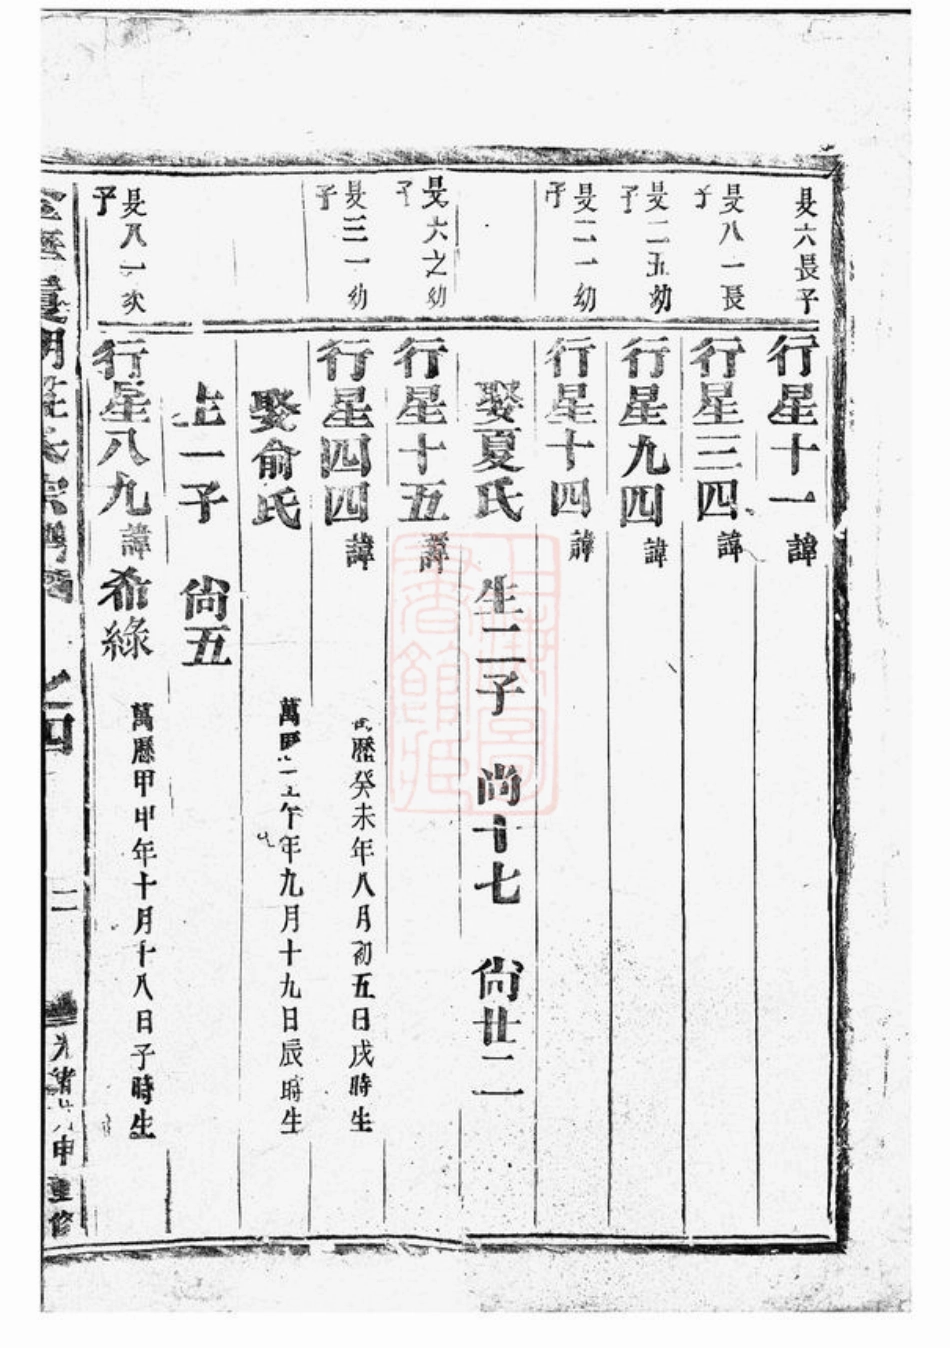 旻六長子
行星十一 諱
旻八一長子
行星三四 諱
旻二五幼子
行星九四 諱
旻二一幼子
行星十四 諱
娶夏氏 生二子 尚十七 尚廿二
旻六之幼子
行星十五 諱
旻三一幼子
行星四四 諱 歷癸未年八月初五日戌時生
娶俞氏 萬 午年九月十九日辰時生
生一子 尚五
旻八一次子
行星八九 諱希綠 萬歷甲申年十月十八日子時生
之四
二
光緒 申重修